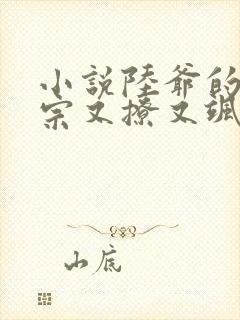 小説陸爺的
宗又撩又颯
山底